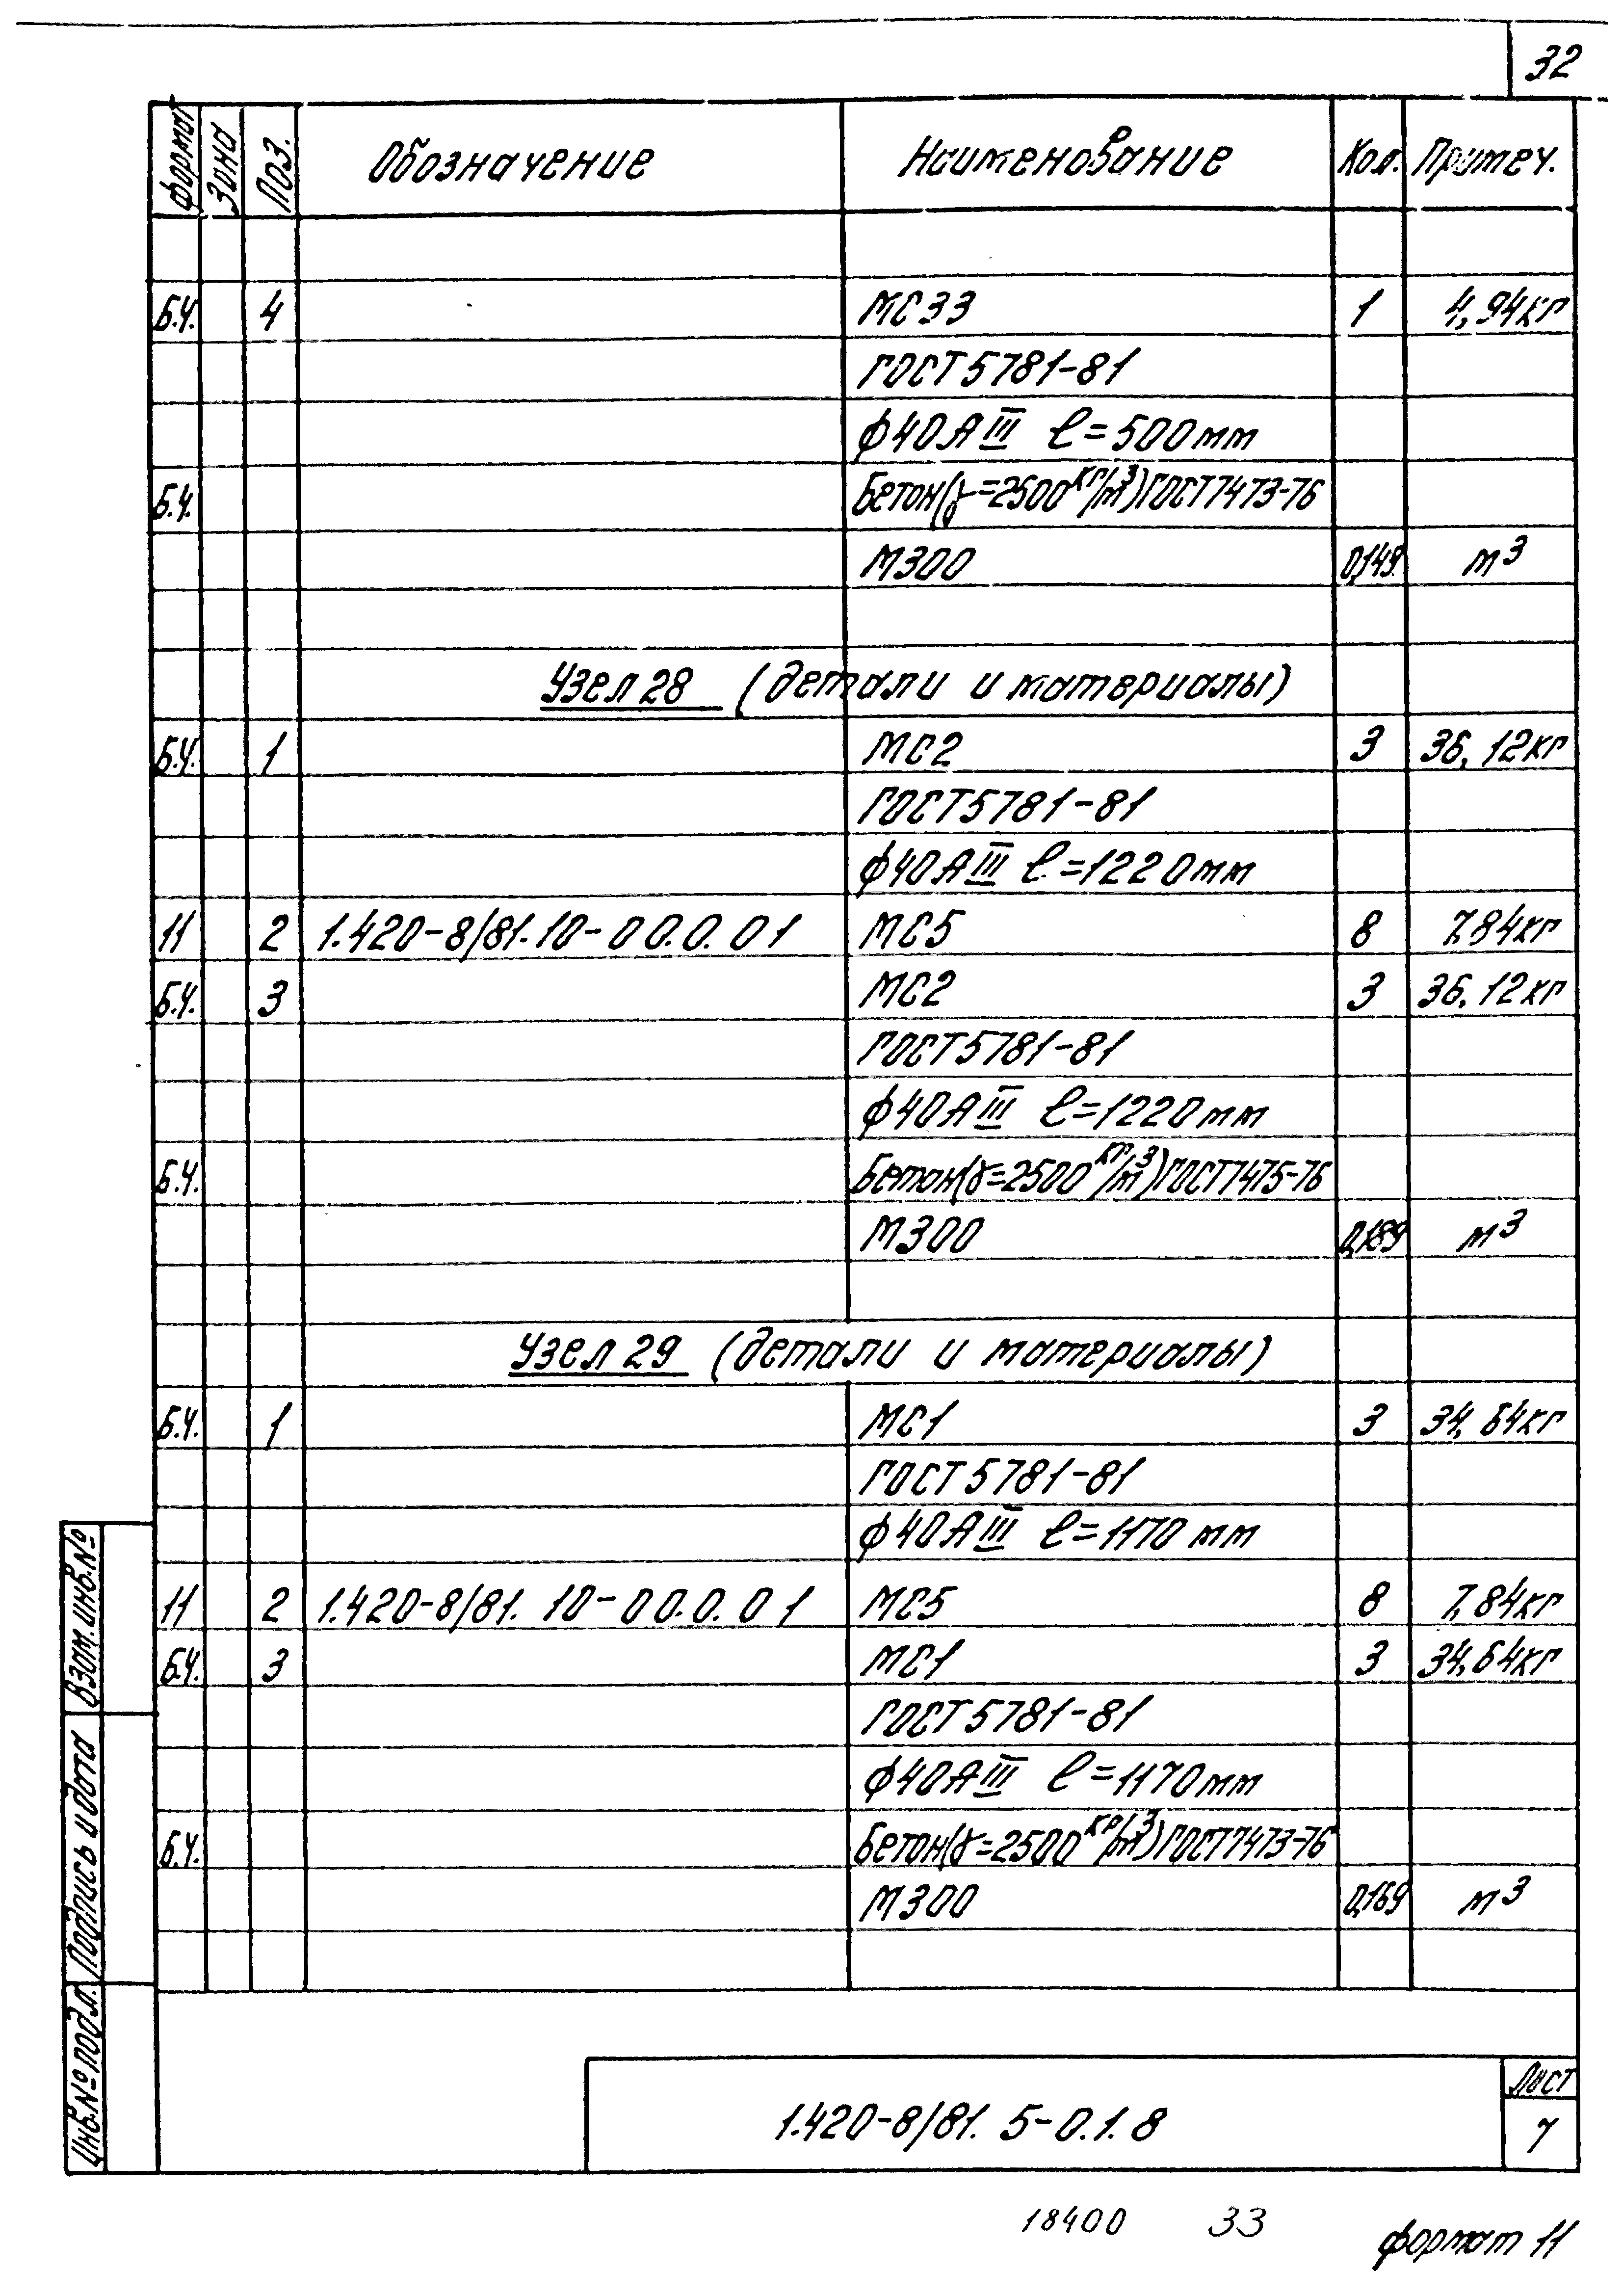 32
Формат Зона Поз. Обозначение Наименование Кол. Примеч.
Б.Ч. 4 МС33 1 4,94кг
ГОСТ 5781-81
ф40АIII ℓ=500мм
Б.Ч. Бетон(γ=2500кг/м³)ГОСТ7473-76
М300 0,149 м³
Узел 28 (детали и материалы)
Б.Ч. 1 МС2 3 36,12кг
ГОСТ5781-81
ф40АIII ℓ=1220мм
11 2 1.420-8/81.10-00.0.01 МС5 8 7,84кг
Б.Ч. 3 МС2 3 36,12кг
ГОСТ5781-81
ф40АIII ℓ=1220мм
Б.Ч. Бетон(γ=2500кг/м³)ГОСТ7475-76
М300 0,189 м³
Узел 29 (детали и материалы)
Б.Ч. 1 МС1 3 34,64кг
ГОСТ 5781-81
ф40АIII ℓ=1170 мм
11 2 1.420-8/81.10-00.0.01 МС5 8 7,84кг
Б.Ч. 3 МС1 3 34,64кг
ГОСТ 5781-81
ф40АIII ℓ=1170мм
Б.Ч. Бетон(γ=2500кг/м³)ГОСТ7473-76
М300 0,169 м³
Взам.инв.№
Подпись и дата
Инв.№ подл.
1.420-8/81. 5-0.1.8
Лист
7
18400 33
формат 11